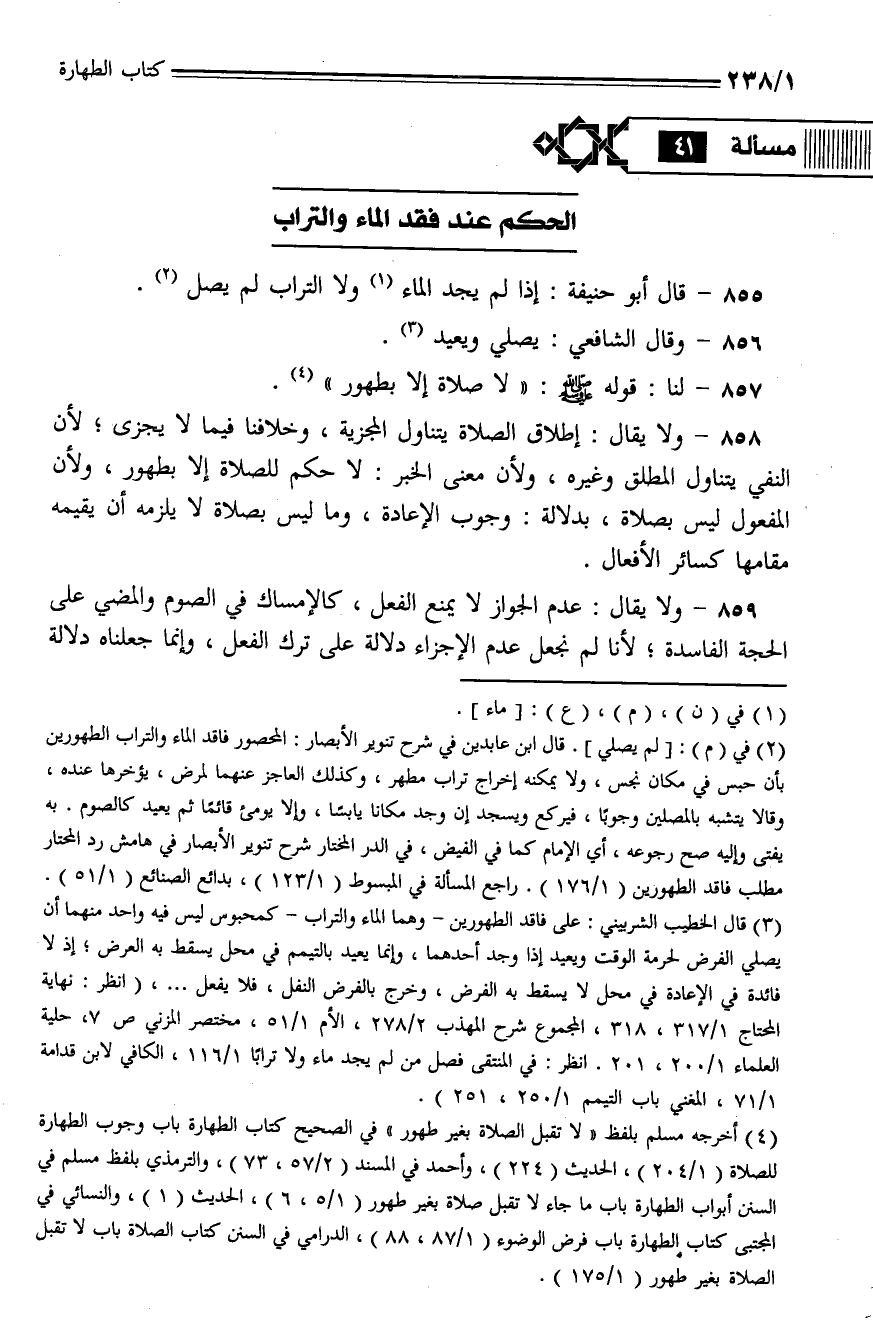 ٢٣٨/١ كتاب الطهارة
مسألة ٤١
الحكم عند فقد الماء والتراب
٨٥٥ - قال أبو حنيفة : إذا لم يجد الماء (١) ولا التراب لم يصل (٢) .
٨٥٦ - وقال الشافعي : يصلي ويعيد (٣) .
٨٥٧ - لنا : قوله ﷺ : « لا صلاة إلا بطهور » (٤) .
٨٥٨ - ولا يقال : إطلاق الصلاة يتناول المجزية ، وخلافنا فيما لا يجزى ؛ لأن
النفي يتناول المطلق وغيره ، ولأن معنى الخبر : لا حكم للصلاة إلا بطهور ، ولأن
المفعول ليس بصلاة ، بدلالة : وجوب الإعادة ، وما ليس بصلاة لا يلزمه أن يقيمه
مقامها كسائر الأفعال .
٨٥٩ - ولا يقال : عدم الجواز لا يمنع الفعل ، كالإمساك في الصوم والمضي على
الحجة الفاسدة ؛ لأنا لم نجعل عدم الإجزاء دلالة على ترك الفعل ، وإنما جعلناه دلالة
(١) في ( ن ) ، ( م ) ، ( ع ) : [ ماء ] .
(٢) في ( م ) : [ لم يصلي ] . قال ابن عابدين في شرح تنوير الأبصار : المحصور فاقد الماء والتراب الطهورين
بأن حبس في مكان نجس ، ولا يمكنه إخراج تراب مطهر ، وكذلك العاجز عنهما لمرض ، يؤخرها عنده ،
وقالا يتشبه بالمصلين وجوبًا ، فيركع ويسجد إن وجد مكانا يابسًا ، وإلا يومئ قائمًا ثم يعيد كالصوم . به
يفتى وإليه صح رجوعه ، أي الإمام كما في الفيض ، في الدر المختار شرح تنوير الأبصار في هامش رد المختار
مطلب فاقد الطهورين ( ١٧٦/١ ) . راجع المسألة في المبسوط ( ١٢٣/١ ) ، بدائع الصنائع ( ٥١/١ ) .
(٣) قال الخطيب الشربيني : على فاقد الطهورين - وهما الماء والتراب - كمحبوس ليس فيه واحد منهما أن
يصلي الفرض لحرمة الوقت ويعيد إذا وجد أحدهما ، وإنما يعيد بالتيمم في محل يسقط به العرض ؛ إذ لا
فائدة في الإعادة في محل لا يسقط به الفرض ، وخرج بالفرض النفل ، فلا يفعل ... ، ( انظر : نهاية
المحتاج ٣١٧/١ ، ٣١٨ ، المجموع شرح المهذب ٢٧٨/٢ ، الأم ٥١/١ ، مختصر المزني ص ٧، حلية
العلماء ٢٠٠/١ ، ٢٠١ . انظر : في المنتقى فصل من لم يجد ماء ولا ترابًا ١١٦/١ ، الكافي لابن قدامة
٧١/١ ، المغني باب التيمم ٢٥٠/١ ، ٢٥١ ) .
(٤) أخرجه مسلم بلفظ « لا تقبل الصلاة بغير طهور » في الصحيح كتاب الطهارة باب وجوب الطهارة
للصلاة ( ٢٠٤/١ ) ، الحديث ( ٢٢٤ ) ، وأحمد في المسند ( ٥٧/٢ ، ٧٣ ) ، والترمذي بلفظ مسلم في
السنن أبواب الطهارة باب ما جاء لا تقبل صلاة بغير طهور ( ٥/١ ، ٦ ) ، الحديث ( ١ ) ، والنسائي في
المجتبى كتاب الطهارة باب فرض الوضوء ( ٨٧/١ ، ٨٨ ) ، الدرامي في السنن كتاب الصلاة باب لا تقبل
الصلاة بغير طهور ( ١٧٥/١ ) .